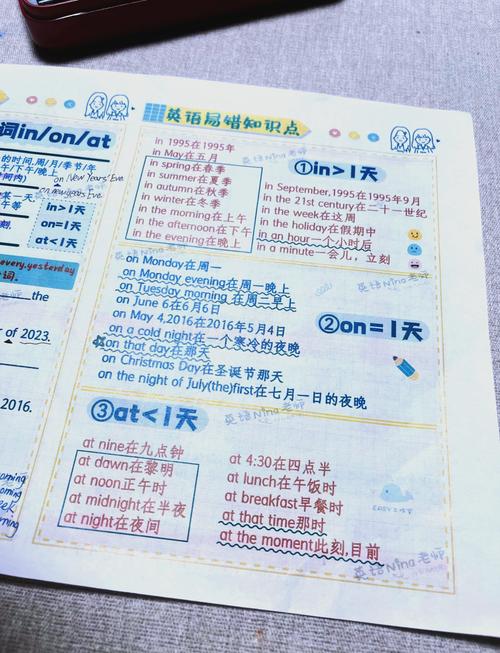 词in/on/at
的时间,周/月/季节/年
上午/下午/晚上
on New Year's Eve
in>1天
on=1天
at<1天
every,yesterday
the
r of 2023.
2016.
英语易错知识点
in 1995在1995年
in May在五月
英语Nina老师
in spring在春季
in summer在夏季
in autumn在秋季
in winter在冬季
in the morning在上午
in the afternoon在下午
in the evening在晚上
①in>1天
in September,1995在1995年9月
in the 21st century在二十一世纪
in the week在这周
in the holiday在假期中
in an hour一个小时后
in a minute一会儿，立刻
英语Nina老师
on Monday在周一
on Monday evening在周一晚上
on Tuesday morning 在周二早上
on June 6在6月6日
on May 4,2016在2016年5月4日
on a cold night在一个寒冷的夜晚
on that day在那天
on Christmas Day在圣诞节那天
on the night of July(the)first在七月一日的夜晚
②on=1天
英语Nina老师
③at<1天
英语Nina老师
at nine在九点钟
at dawn在黎明
at noon正午时
at midnight在半夜
at night在夜间
at 4:30在四点半
at lunch在午饭时
at breakfast早餐时
at that time那时
at the moment此刻,目前
英语Nina老师